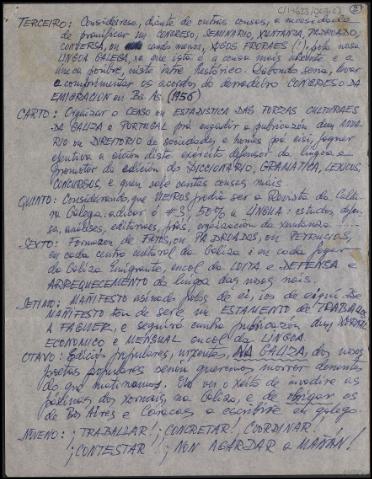 TERCEIRO: Considerese, diante de outras cousas, a necesidade
de planificar un CONGRESO, SEMINARIO, XUNTANZA, PADROADO,
CONVERSA, ou cando menos, XOGOS FRORAES (!), pola nosa
LINGOA GALEGA, xa que ista é a cousa mais urxente e a
unica posibre, niste intre histórico. Dabondo seria, levar
a comprimento os acordos do derradeiro CONGRESO DA
EMIGRACION en Bs As. (1956)
CARTO: Organizar o CENSO ou ESTADISTICA DAS FORZAS CULTURAES
DA GALIZA e PORTUGAL pra engadir a pubricazón dun ANUA
RIO ou DIRECTORIO de sociedades e homes pra eisí, faguer
efeutiva a aición diste exército defensor da lingua e
promotor da edición do DICCIONARIO, GRAMATICA, LEXICOS,
CONCURSOS e quen sabe cantas cousas mais
QUINTO: Considerando que VIEIROS podría ser a Revista da Cultu-
ra Galega: adicar o #3, 50% a LINGUA: estudos, defen-
sa, análises, editoriaes, organización da xuntanza ...
SEXTO: Formazón de PADROADOS, ou PATRUCIOS,
en cada centro cultural da Galiza i en cada
da Galiza Emigrante, encol da LOITA e DEFENSA e
ARREQUECEMENTO da lingua das nosas nais
SETIMO: MANIFESTO asinado polos de eí, ios de eiquí. Ise
MANIFESTO ten de sere un ESTAMENTO de TRABALLO
A FAGUER, e seguiro cunha pubricazón dun XORNAL
ECONOMICO e MENSUAL encol da LINGOA.
OITAVO: Edicións populares, urxentes, NA GALIZA, dos nosos
poetas populares senon queremos morrer denantes
do que matinamos. Eu vexo o xeito de invadire as
páxinas dos xornaes na Galiza, e de obrigar os
de Bos Aires e Caracas a escribire en galego.
NOVENO: ¡TRABALLAR! ¡CONCRETAR! ¡COORDINAR!
¡CONTESTAR! ¡NON AGARDAR a MAÑÁN!